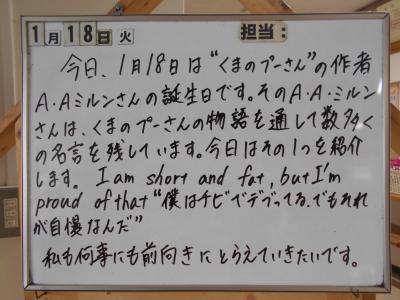 1月18日火 担当:
今日、1月18日は“くまのプーさん”の作者
A・Aミルンさんの誕生日です。そのA・A・ミルン
さんは、くまのプーさんの物語を通して数多く
の名言を残しています。今日はその1つを紹介
します。I am short and fat, but I'm
proud of that “僕はチビでデブってる、でもそれ
が自慢なんだ”
私も何事にも前向きにとらえていきたいです。